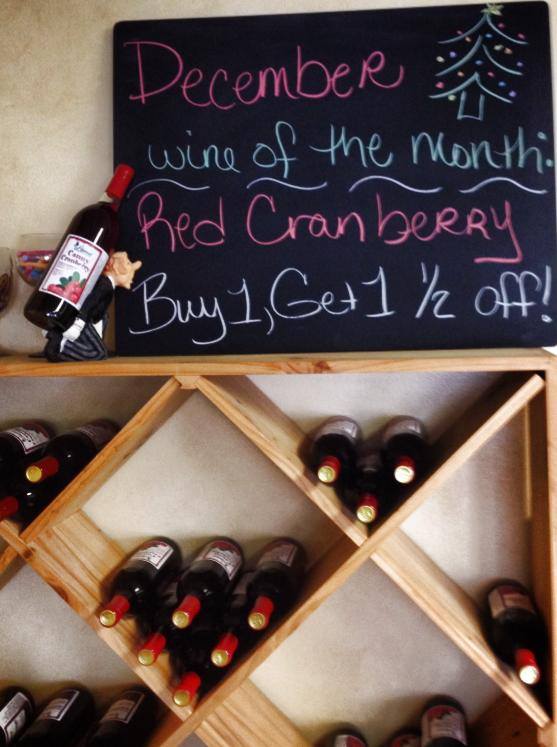 December
wine of the month:
Red Cranberry
Buy 1, Get 1 1/2 off!
Cranberry